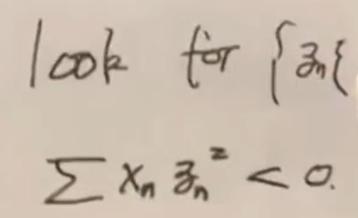 look for {zn}
∑ xn zn² < 0.